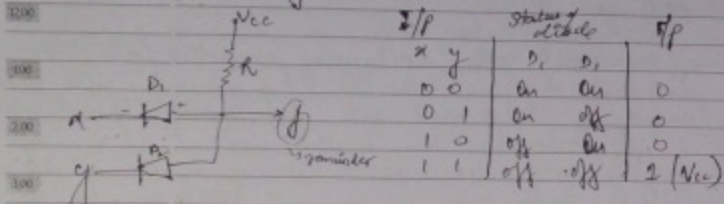 Vcc
R
D₁
- +
x
f
D₂
y
I/P Status of diode O/P
x y D₁ D₂
0 0 On On 0
0 1 On off 0
1 0 off On 0
1 1 off off 1 (Vcc)